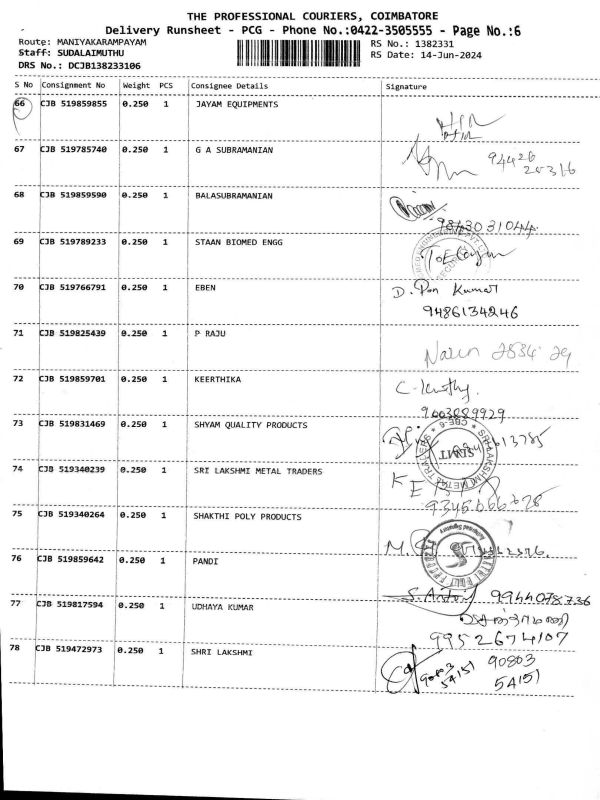 THE PROFESSIONAL COURIERS, COIMBATORE
Delivery Runsheet - PCG - Phone No.:0422-3505555 - Page No.:6
Route: MANIYAKARAMPAYAM
RS No.: 1382331
Staff: SUDALAIMUTHU
RS Date: 14-Jun-2024
DRS No.: DCJB138233106
S No Consignment No Weight PCS Consignee Details Signature
66 CJB 519859855 0.250 1 JAYAM EQUIPMENTS
67 CJB 519785740 0.250 1 G A SUBRAMANIAN
94426
20316
68 CJB 519859590 0.250 1 BALASUBRAMANIAN
9843031044
69 CJB 519789233 0.250 1 STAAN BIOMED ENGG
70 CJB 519766791 0.250 1 EBEN D. Pon Kumar
9486134246
71 CJB 519825439 0.250 1 P RAJU
72 CJB 519859701 0.250 1 KEERTHIKA
9003889929
73 CJB 519831469 0.250 1 SHYAM QUALITY PRODUCTS
74 CJB 519340239 0.250 1 SRI LAKSHMI METAL TRADERS
75 CJB 519340264 0.250 1 SHAKTHI POLY PRODUCTS
76 CJB 519859642 0.250 1 PANDI
9944078736
77 CJB 519817594 0.250 1 UDHAYA KUMAR
9952674107
78 CJB 519472973 0.250 1 SHRI LAKSHMI
90803 90803
54151 54151